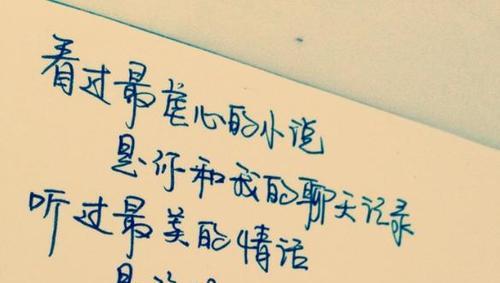 看过最虐心的小说
是你和我的聊天记录
听过最美的情话
是